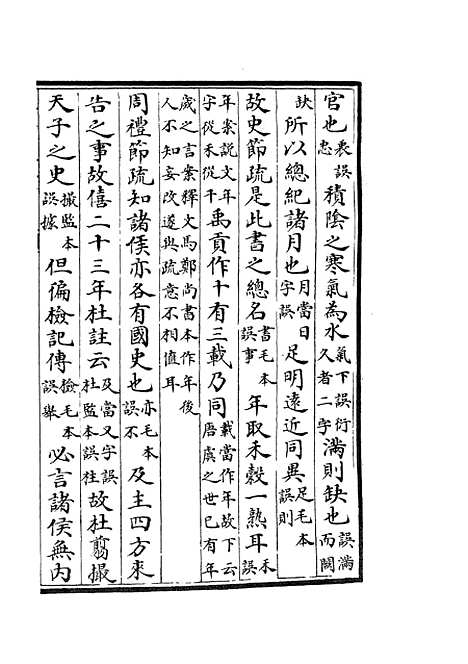 官也表誤忠積陰之寒氣為水氣下誤衍久者二字滿則缺也誤滿而闕
缺所以總紀諸月也月當日字誤足明遠近同異足毛本誤則
故史節疏是此書之總名書毛本誤事年取禾穀一熟耳禾誤
年案說文年字從禾從千禹貢作十有三載乃同載當作年故下云唐虞之世已有年
歲之言案釋文馬鄭尚書本作年後人不知妄改遂與疏意不相值耳
周禮節疏知諸侯亦各有國史也亦毛本誤不及主四方來
告之事故僖二十三年杜註云及當又字誤杜監本誤柱故杜翦撮
天子之史撮監本誤據但徧檢記傳檢毛本誤舉必言諸侯無內